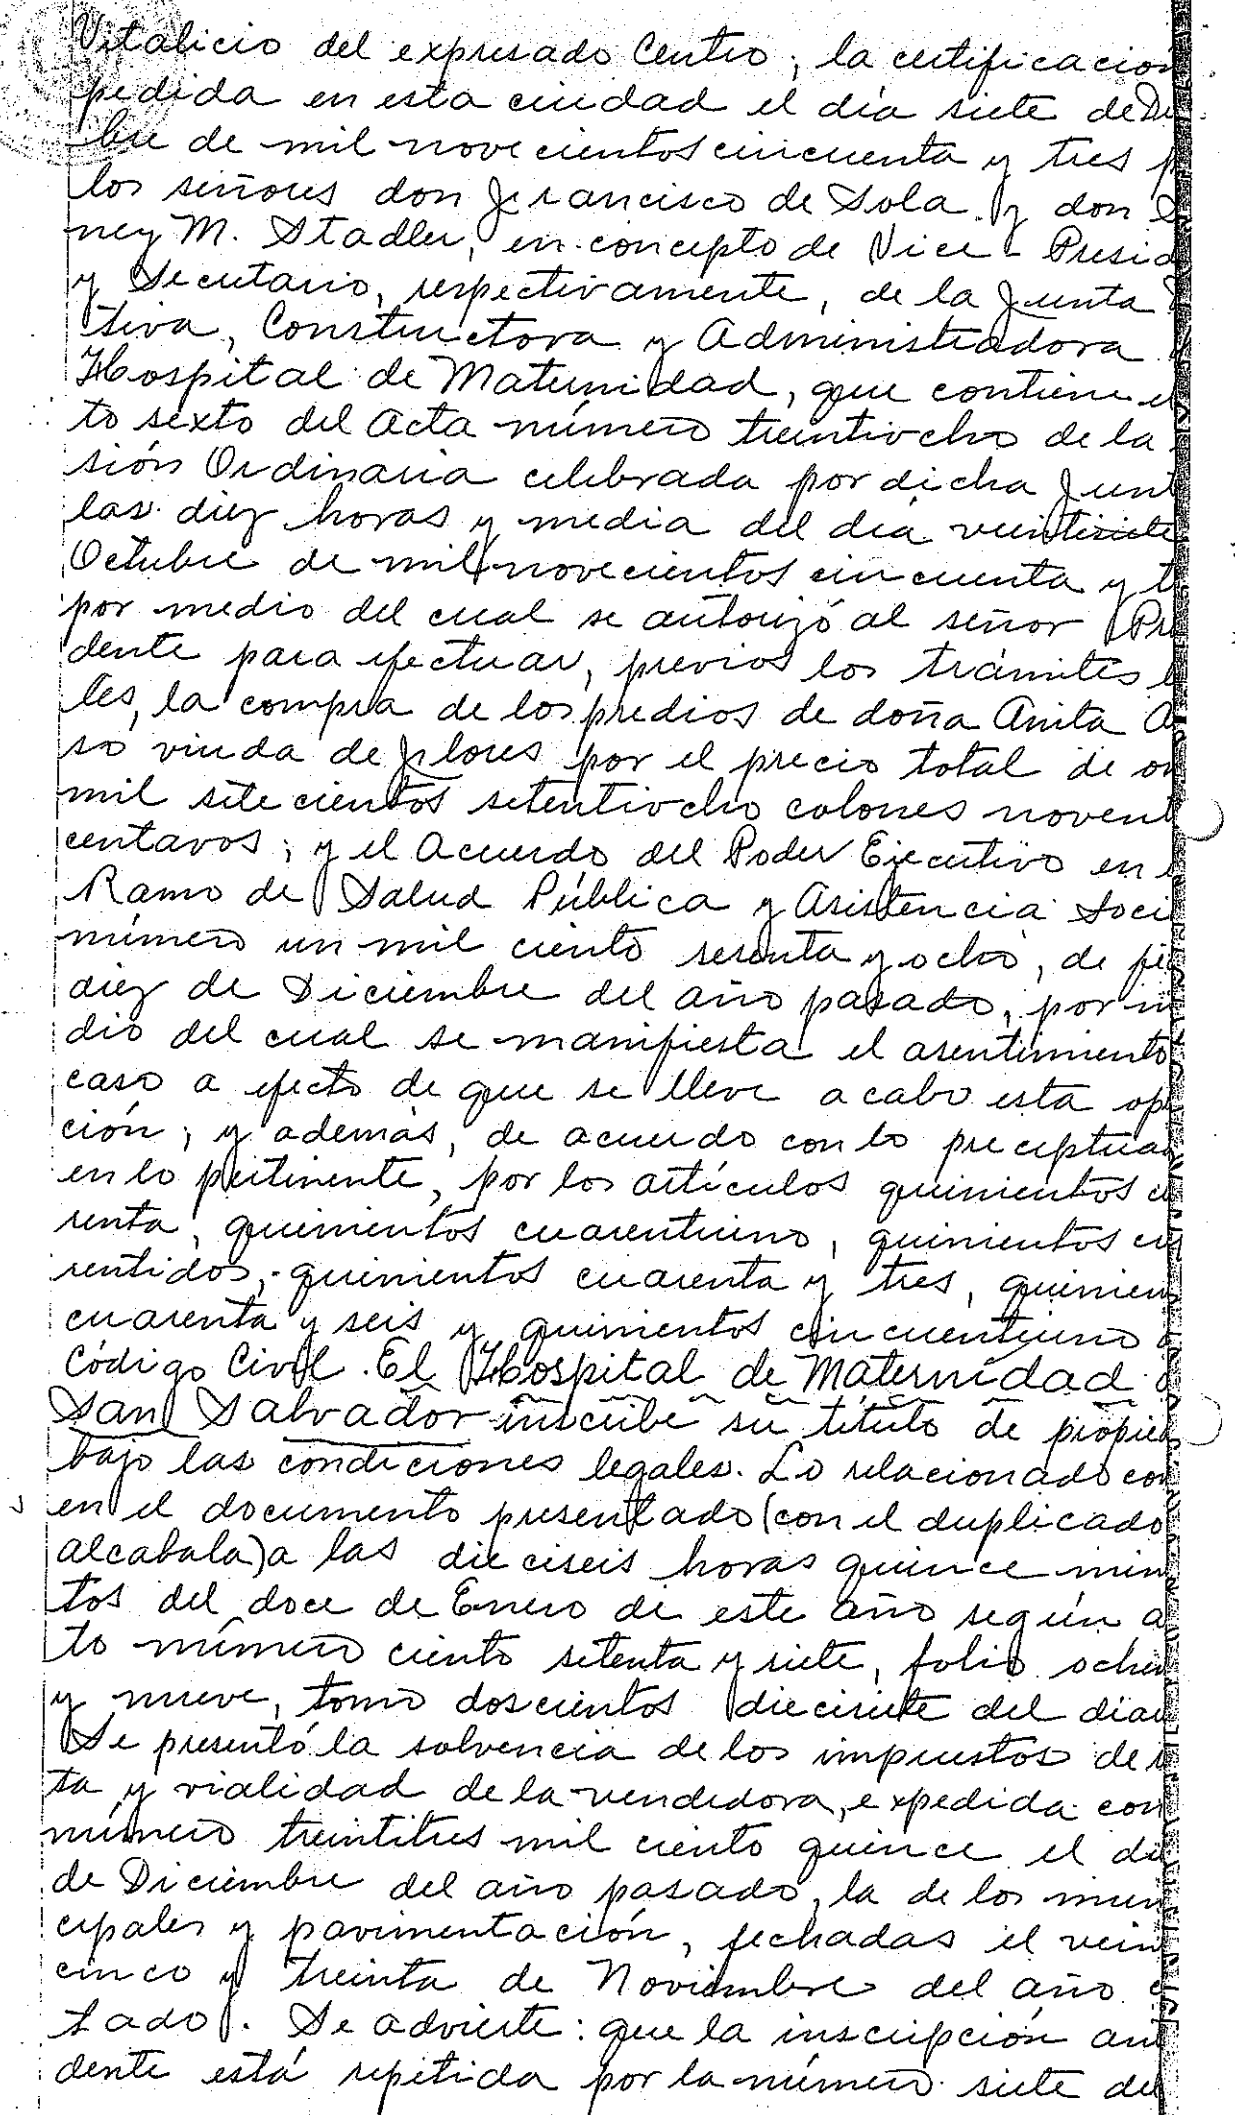 Vitalicio del expresado Centro; la certificación
pedida en esta ciudad el día siete de Di
bre de mil novecientos cincuenta y tres p
los señores don Francisco de Sola y don S
ney M. Stadler, en concepto de Vice-Presid
y Secretario, respectivamente, de la Junta
tiva, Constructora y Administradora
Hospital de Maternidad, que contiene el
to sexto del Acta número treintiocho de la
sión Ordinaria celebrada por dicha Junt
las diez horas y media del día veintisiete
Octubre de mil novecientos cincuenta y t
por medio del cual se autorizó al señor Pre
dente para efectuar, previos los trámites l
les, la compra de los predios de doña Anita A
so viuda de Flores por el precio total de on
mil setecientos setentiocho colones novent
centavos; y el Acuerdo del Poder Ejecutivo en e
Ramo de Salud Pública y Asistencia Soci
número un mil ciento sesenta y ocho, de fe
diez de Diciembre del año pasado, por m
dio del cual se manifiesta el asentimiento
caso a efecto de que se lleve a cabo esta ope
ción; y además, de acuerdo con lo preceptuad
en lo pertinente, por los artículos quinientos cu
renta, quinientos cuarentiuno, quinientos cu
rentidos, quinientos cuarenta y tres, quinien
cuarenta y seis y quinientos cincuentiuno d
Código Civil. El Hospital de Maternidad d
San Salvador inscribe su título de propied
bajo las condiciones legales. Lo relacionado con
en el documento presentado (con el duplicado
alcabala) a las dieciseis horas quince minu
tos del doce de Enero de este año según a
to número ciento setenta y siete, folio ochen
y nueve, tomo doscientos diecisiete del diar
Se presentó la solvencia de los impuestos de r
ta y vialidad de la vendedora, expedida con
número treintitres mil ciento quince el di
de Diciembre del año pasado, la de los mun
cipales y pavimentación, fechadas el vein
cinco y treinta de Noviembre del año c
tado. Se advierte: que la inscripción ant
dente está repetida por la número siete del